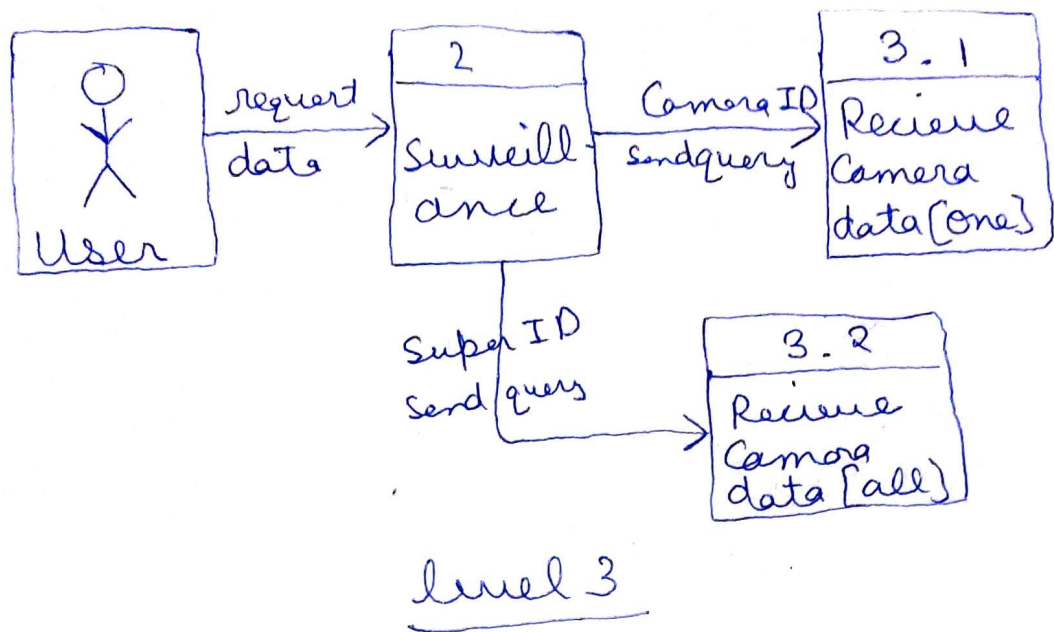 User
request
data
2
Surveill
ance
Camera ID
sendquery
3.1
Recieve
Camera
data [one]
Super ID
send query
3.2
Recieve
Camera
data [all]
level 3